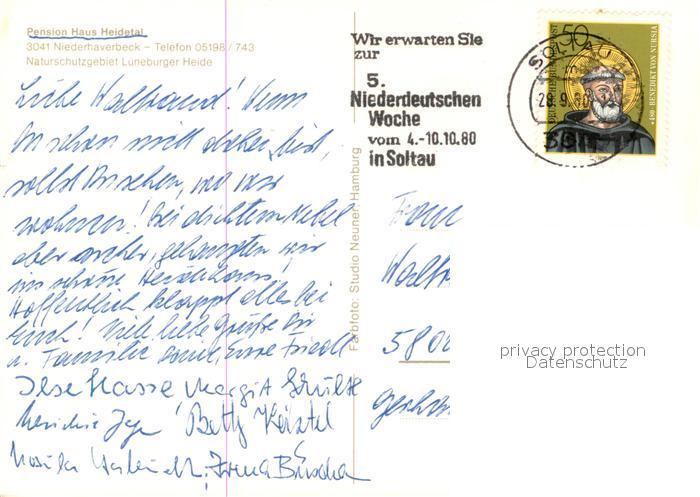 Pension Haus Heidetal
3041 Niederhaverbeck – Telefon 05198 / 743
Naturschutzgebiet Lüneburger Heide
Liebe Waltraud! Wenn
Du schon nicht dabei bist,
sollst Du sehen, wo wir
wohnen! Bei dichtem Nebel
aber sicher, gelangten wir
ins schöne
Hoffentlich klappt alles bei
Euch! Viele liebe Grüße Dir
u. Familie
Ilse Hasse Margit Schulze
Betty
Irma
Farbfoto: Studio Neuner, Hamburg
Wir erwarten Sie
zur
5.
Niederdeutschen
Woche
vom 4.-10.10.80
in Soltau
SOLTAU
DEUTSCHE BUNDESPOST
50
*480 · BENEDIKT VON NURSIA
Frau
Waltr
5800
privacy protection
Datenschutz